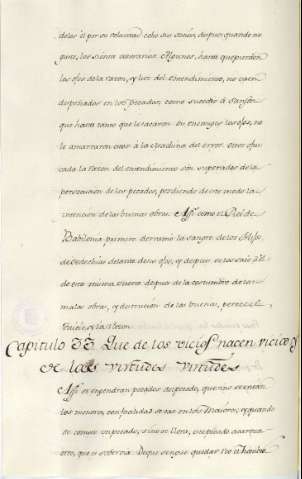 deles él por su voluntad cebo sus sentidos, despues quando no
quiere, los sienta contrarios. Algunos, hasta que pierden
los ojos de la razon, y luz del entendimiento, no caen
despeñados en los pecados; como sucedio à Sanson
que hasta tanto que le sacaron sus enemigos los ojos, no
le amarraron a la del error. otro
cada la razon del entendimiento son superadas de la
persuacion de los pecados, perdiendo de este modo la
intencion de las buenas obras. Assi como el Rei de
Babilonia primero derramó la sangre de los Hijos
de Sedechias delante de sus ojos, y despues se los sacó à él
de esta misma suerte despues de la costumbre de las
malas obras, y destruccion de las buenas, perece el
Juicio, y la
Capitulo Que de los vicios nacen vicios, y
de las virtudes virtudes
Assi se engendran pecados de pecado, que no se evitan
los menores, con facilidad se cae en los Maiores, y quando
se comete un pecado, sino se llora,
otro, que es soberbia. De que se sigue quedar tal el hombre